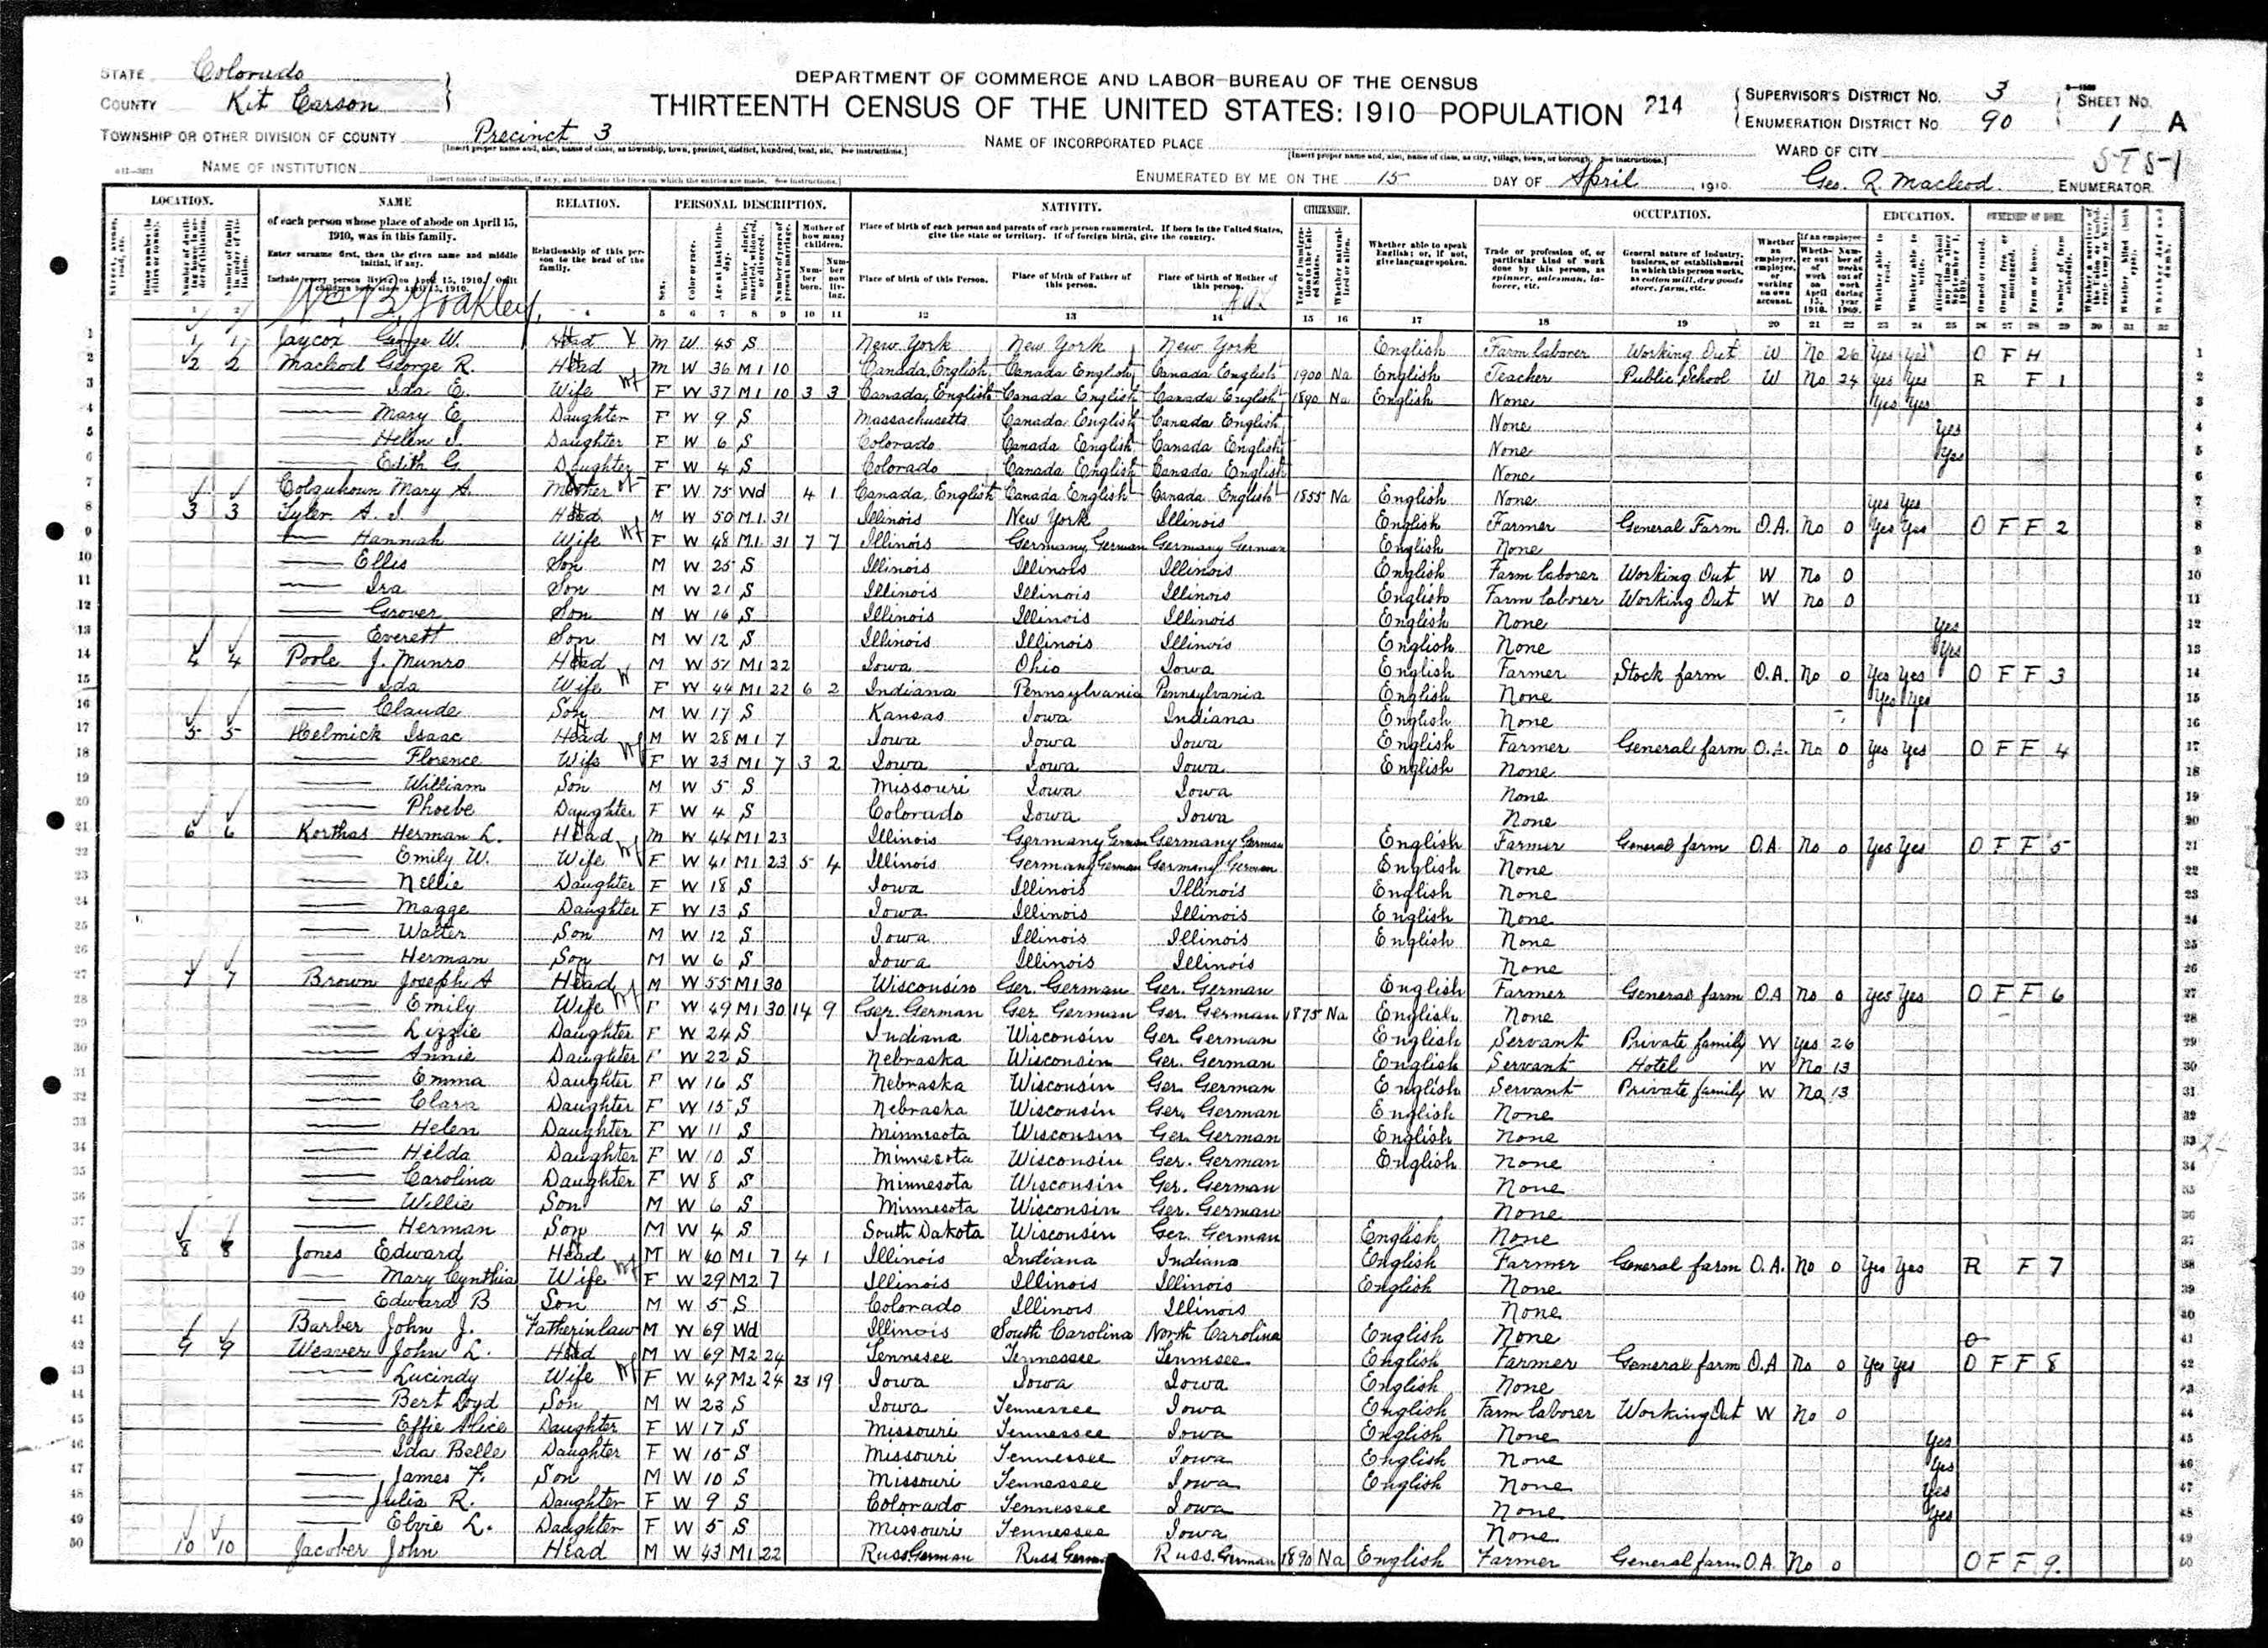 STATE Colorado
COUNTY Kit Carson
DEPARTMENT OF COMMERCE AND LABOR—BUREAU OF THE CENSUS
THIRTEENTH CENSUS OF THE UNITED STATES: 1910—POPULATION 214
SUPERVISOR'S DISTRICT No. 3
ENUMERATION DISTRICT No. 90
SHEET No. 1 A
TOWNSHIP OR OTHER DIVISION OF COUNTY Precinct 3
NAME OF INCORPORATED PLACE
WARD OF CITY
NAME OF INSTITUTION
ENUMERATED BY ME ON THE 15 DAY OF April, 1910. Geo. R. Macleod ENUMERATOR.
LOCATION. NAME RELATION. PERSONAL DESCRIPTION. NATIVITY. CITIZENSHIP. OCCUPATION. EDUCATION. OWNERSHIP OF HOME.
of each person whose place of abode on April 15, 1910, was in this family.
Enter surname first, then the given name and middle initial, if any.
Include every person living on April 15, 1910. Omit children born since April 15, 1910.
Relationship of this person to the head of the family.
Place of birth of each person and parents of each person enumerated. If born in the United States, give the state or territory. If of foreign birth, give the country.
Place of birth of this Person. Place of birth of Father of this person. Place of birth of Mother of this person.
Whether able to speak English; or, if not, give language spoken.
1 1 1 Jaycox George W. Head M W 45 S New York New York New York English Farm laborer Working Out W No 26 Yes Yes O F H 1
2 2 2 Macleod George R. Head M W 36 M1 10 Canada, English Canada English Canada English 1900 Na English Teacher Public School W No 24 Yes Yes R F 1 2
3 — Ida E. Wife F W 37 M1 10 3 3 Canada, English Canada English Canada English 1890 Na English None Yes Yes 3
4 — Mary E. Daughter F W 9 S Massachusetts Canada English Canada English None Yes 4
5 — Helen I. Daughter F W 6 S Colorado Canada English Canada English None Yes 5
6 — Edith G. Daughter F W 4 S Colorado Canada English Canada English None 6
7 Colquhoun Mary A. Mother F W 75 Wd 4 1 Canada, English Canada English Canada English 1855 Na English None Yes Yes 7
8 3 3 Tyler A. I. Head M W 50 M1 31 Illinois New York Illinois English Farmer General Farm O.A. No 0 Yes Yes O F F 2 8
9 — Hannah Wife F W 48 M1 31 7 7 Illinois Germany German Germany German English None 9
10 — Ellis Son M W 25 S Illinois Illinois Illinois English Farm laborer Working Out W No 0 10
11 — Ira Son M W 21 S Illinois Illinois Illinois English Farm laborer Working Out W No 0 11
12 — Grover Son M W 16 S Illinois Illinois Illinois English None Yes 12
13 — Everett Son M W 12 S Illinois Illinois Illinois English None Yes 13
14 4 4 Poole J. Munro Head M W 51 M1 22 Iowa Ohio Iowa English Farmer Stock farm O.A. No 0 Yes Yes O F F 3 14
15 — Ida Wife F W 44 M1 22 6 2 Indiana Pennsylvania Pennsylvania English None Yes Yes 15
16 — Claude Son M W 17 S Kansas Iowa Indiana English None 16
17 5 5 Helmick Isaac Head M W 28 M1 7 Iowa Iowa Iowa English Farmer General farm O.A. No 0 Yes Yes O F F 4 17
18 — Florence Wife F W 23 M1 7 3 2 Iowa Iowa Iowa English None 18
19 — William Son M W 5 S Missouri Iowa Iowa None 19
20 — Phoebe Daughter F W 4 S Colorado Iowa Iowa None 20
21 6 6 Korthas Herman L. Head M W 44 M1 23 Illinois Germany German Germany German English Farmer General farm O.A. No 0 Yes Yes O F F 5 21
22 — Emily W. Wife F W 41 M1 23 5 4 Illinois Germany German Germany German English None 22
23 — Nellie Daughter F W 18 S Iowa Illinois Illinois English None 23
24 — Magge Daughter F W 13 S Iowa Illinois Illinois English None 24
25 — Walter Son M W 12 S Iowa Illinois Illinois English None 25
26 — Herman Son M W 6 S Iowa Illinois Illinois None 26
27 7 7 Brown Joseph A Head M W 55 M1 30 Wisconsin Ger. German Ger. German English Farmer General farm O.A No 0 Yes Yes O F F 6 27
28 — Emily Wife F W 49 M1 30 14 9 Ger. German Ger German Ger. German 1875 Na English None 28
29 — Lizzie Daughter F W 24 S Indiana Wisconsin Ger German English Servant Private family W Yes 26 29
30 — Annie Daughter F W 22 S Nebraska Wisconsin Ger. German English Servant Hotel W No 13 30
31 — Emma Daughter F W 16 S Nebraska Wisconsin Ger German English Servant Private family W No 13 31
32 — Clara Daughter F W 15 S Nebraska Wisconsin Ger. German English None 32
33 — Helen Daughter F W 11 S Minnesota Wisconsin Ger. German English None 33
34 — Hilda Daughter F W 10 S Minnesota Wisconsin Ger. German English None 34
35 — Carolina Daughter F W 8 S Minnesota Wisconsin Ger. German None 35
36 — Willie Son M W 6 S Minnesota Wisconsin Ger. German None 36
37 — Herman Son M W 4 S South Dakota Wisconsin Ger. German English None 37
38 8 8 Jones Edward Head M W 40 M1 7 4 1 Illinois Indiana Indiana English Farmer General farm O.A. No 0 Yes Yes R F 7 38
39 — Mary Cynthia Wife F W 29 M2 7 Illinois Illinois Illinois English None 39
40 — Edward B Son M W 5 S Colorado Illinois Illinois None 40
41 Barber John J. Father in law M W 69 Wd Illinois South Carolina North Carolina English None 41
42 9 9 Weaver John L. Head M W 69 M2 24 Tennesee Tennessee Tennesee English Farmer General farm O.A No 0 Yes Yes O F F 8 42
43 — Lucindy Wife F W 49 M2 24 23 19 Iowa Iowa Iowa English None 43
44 — Bert Loyd Son M W 23 S Iowa Tennessee Iowa English Farm laborer Working Out W No 0 44
45 — Effie Alice Daughter F W 17 S Missouri Tennessee Iowa English None Yes 45
46 — Ida Belle Daughter F W 15 S Missouri Tennessee Iowa English None Yes 46
47 — James F. Son M W 10 S Missouri Tennessee Iowa English None Yes 47
48 — Julia R. Daughter F W 9 S Colorado Tennessee Iowa None Yes 48
49 — Elvie L. Daughter F W 5 S Missouri Tennessee Iowa None 49
50 10 10 Jacober John Head M W 43 M1 22 Russ German Russ German Russ. German 1890 Na English Farmer General farm O.A. No 0 O F F 9. 50